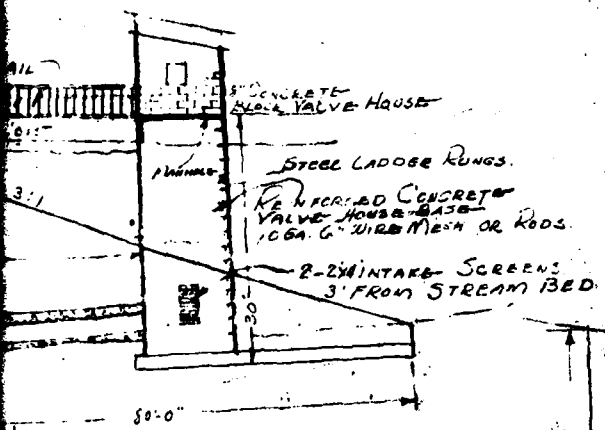 AIL
8" CONCRETE
BLOCK VALVE HOUSE
MANHOLE
STEEL LADDER RUNGS.
3:1
REINFORCED CONCRETE
VALVE HOUSE BASE
10 GA. 6" WIRE MESH OR RODS.
2-2X4 INTAKE SCREENS
3' FROM STREAM BED.
30'
80'-0"